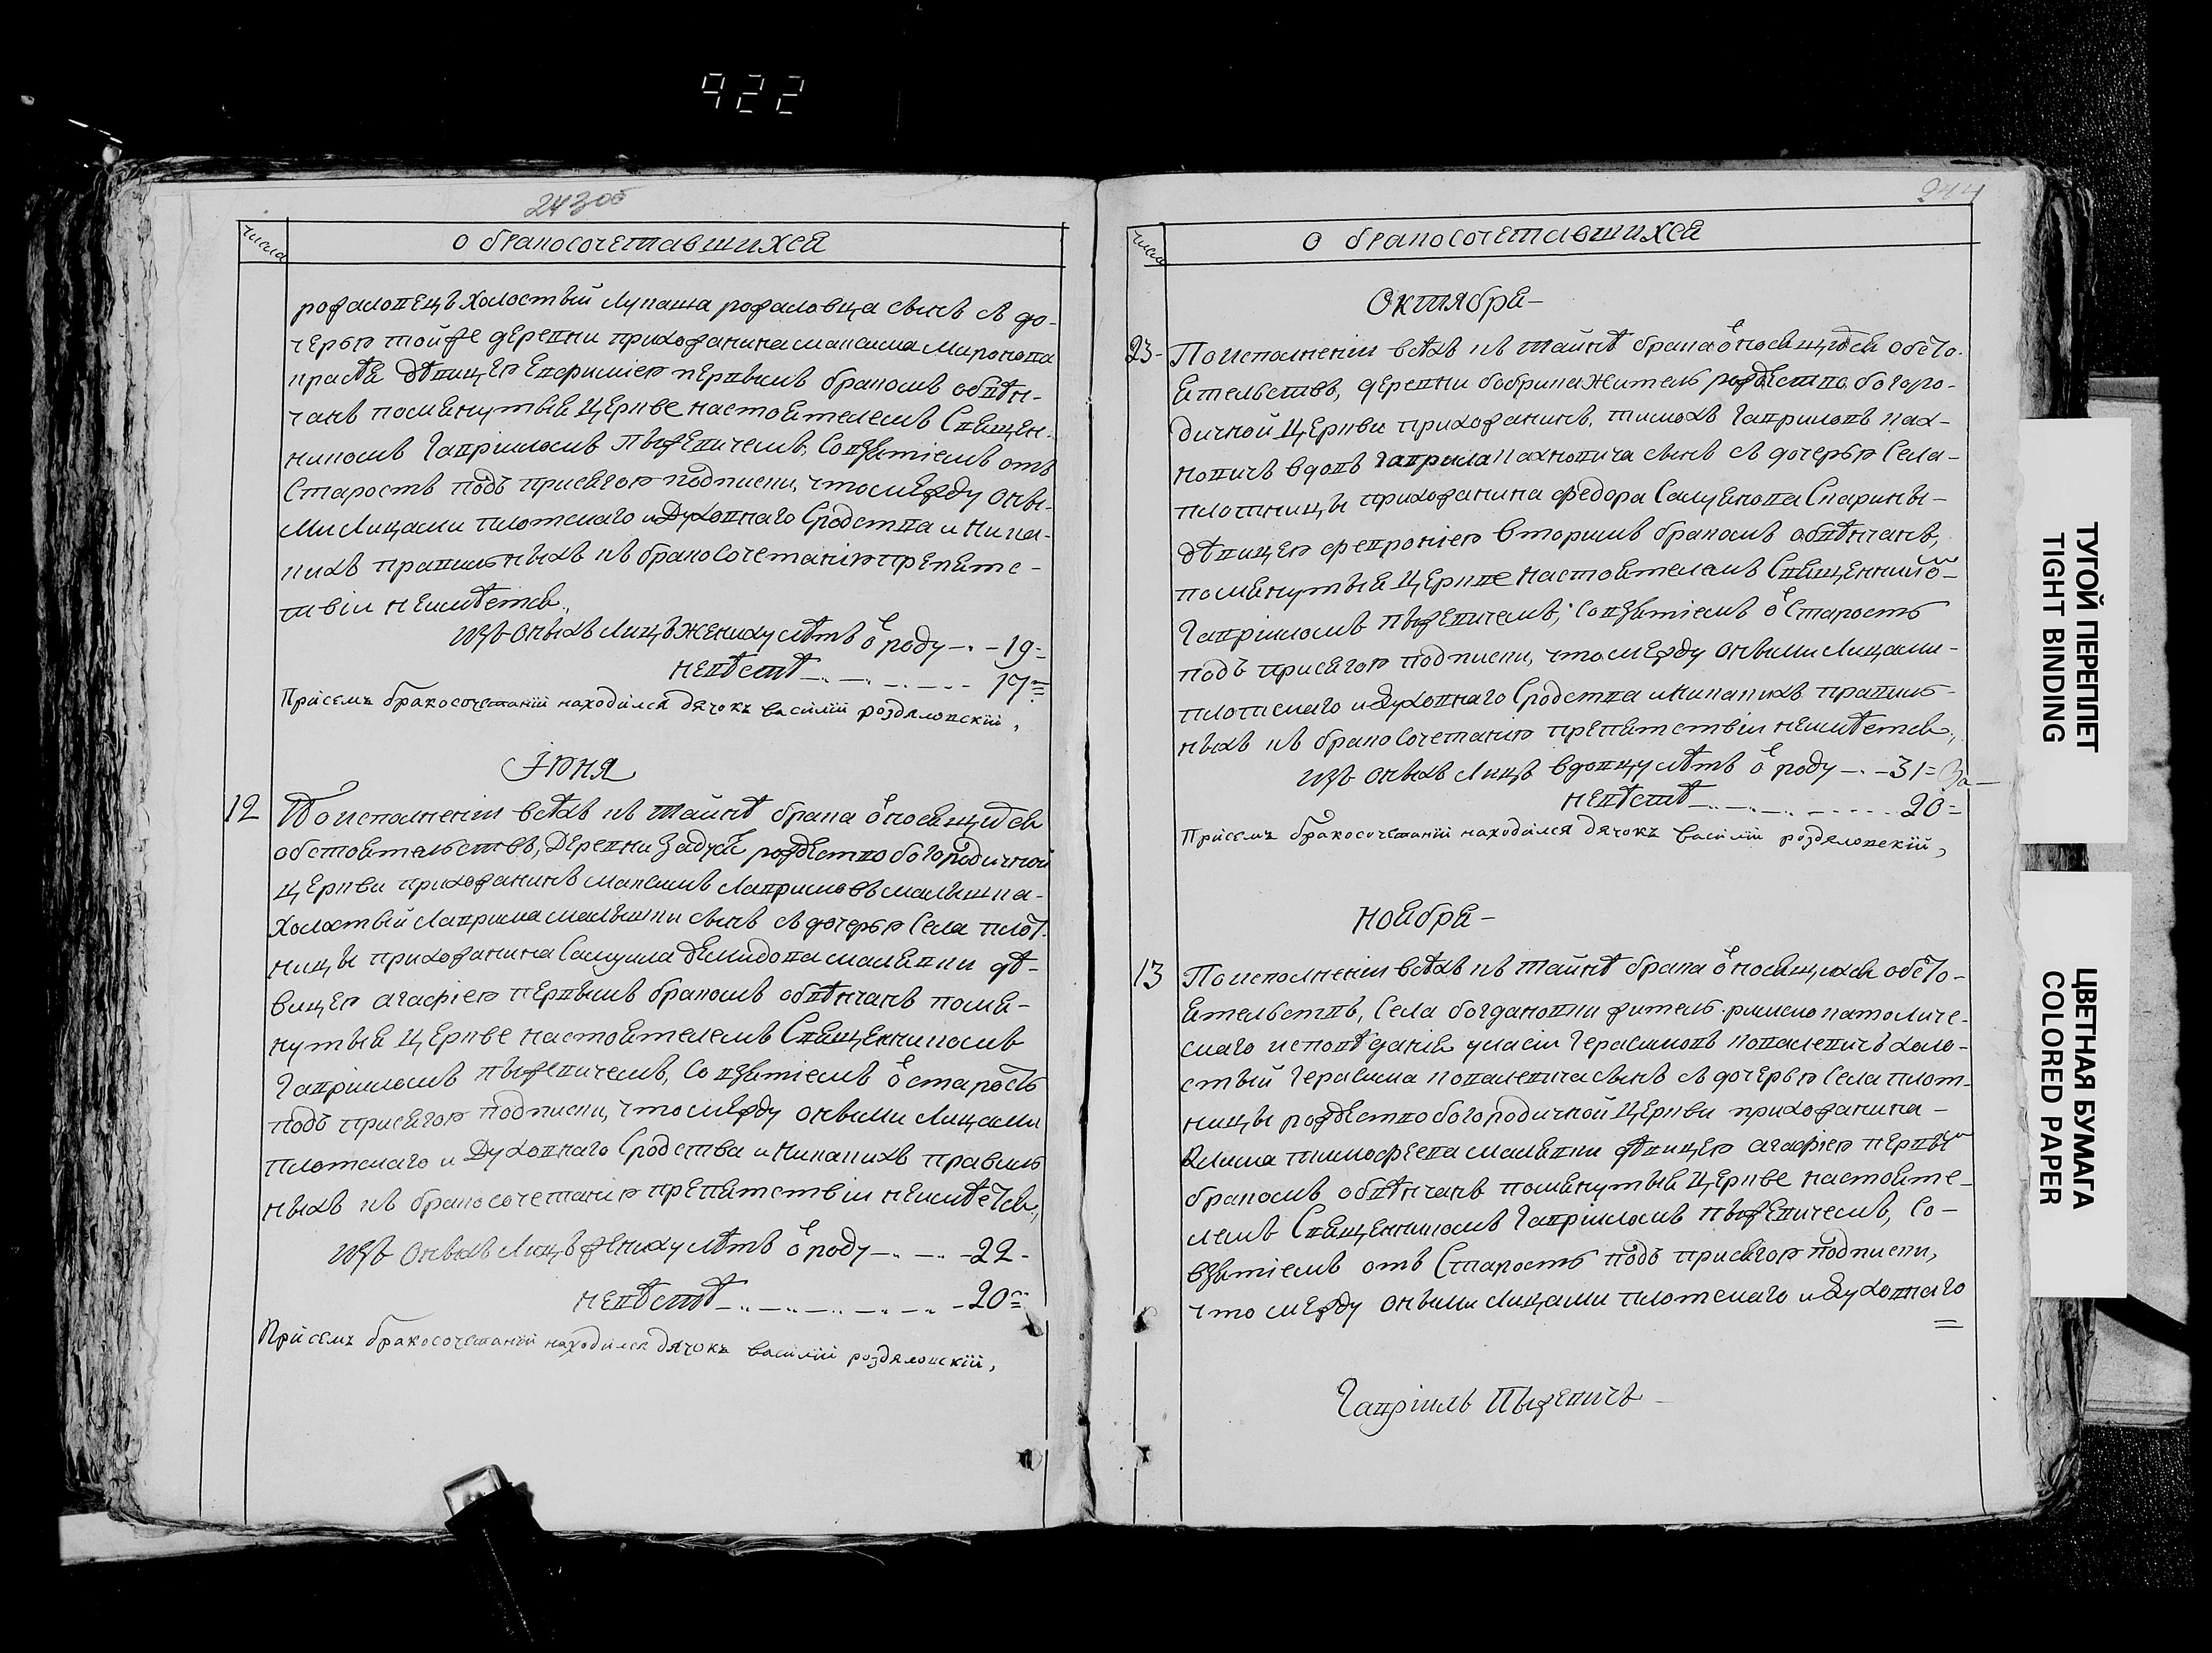 422
243об
числа
о бракосочетавшихся
рожаловецъ холостый Лукаша рожаловца сынъ съ до-
черью тойже деревни прихожанина максима Миронова
кравъя дѣвицею Евфимиею первымъ бракомъ обвѣн-
чанъ помянутыя Церкве настоятелемъ Священ-
никомъ Гавріиломъ Пыжевичемъ, Совзятіемъ отъ
Старостъ подъ присягою подписки, что между оны-
Ми Лицами плотскаго и Духовнаго Сродства и Ника-
кихъ правильныхъ къ бракосочетанію препятс-
твіи неимѣется,
изъ оныхъ Лицъ Жениху лѣтъ ѿ роду - 19=
невѣстѣ 17=
Присемъ бракосочетаніи находился дячокъ василіи роздяловскіи,
Іюня
12 По исполненіи всѣхъ къ тайнѣ брака ѿносящихся
обстоятельствъ, Деревни Задуб рождество богородичной
Церкви прихожанинъ максимъ Лавриновъ малышка-
Холостый Лаврина малышки сынъ съ дочерью Села плот-
ницы прихожанина Самуила демидова малявки дѣ-
вицею агафіею первымъ бракомъ обвѣнчанъ помя-
нутыя Церкве настоятелемъ Священникомъ
Гавріиломъ пыжевичемъ, Со взятіемъ ѿ старостъ
подъ присягою подписки, что между оными Лицами
плотскаго и Духовнаго Сродства и Никакихъ правиль
ныхъ къ бракосочетанію препятствіи неимѣется,
изъ Оныхъ Лицъ жениху лѣтъ ѿ роду - 22-
невѣстѣ 20=
Присемъ бракосочетаніи находился дячокъ василіи роздяловскіи,
244
числа
О бракосочетавшихся
Октября-
23- По исполненіи всѣхъ къ тайнѣ брака ѿносящихся обсто-
ятельствъ, деревни бобрика Житель рождество богоро-
дичной Церкви прихожанинъ, тимохъ Гавриловъ пах-
новичъ вдовъ Гаврила пахновича сынъ съ дочерью Села-
плотницы прихожанина федора Самуйлова Скарины-
дѣвицею февроніею вторымъ бракомъ обвѣнчанъ,
помянутыя Церкве Настоятелемъ Священнико-
Гавріиломъ пыжевичемъ, Совзятіемъ ѿ Старостъ
подъ присягою подписки, что между оными Лицами-
плотскаго и Духовнаго Сродства и Никакихъ правиль-
ныхъ къ бракосочетанію препятствіи неимѣется,
изъ оныхъ Лицъ вдовцу лѣтъ ѿ роду - 31=
невѣстѣ 20=
Присемъ бракосочетаніи находился дячокъ василіи роздяловскіи,
Ноября-
13 По исполненіи всѣхъ къ тайнѣ брака ѿносящихся обсто-
ятельствъ, Села богдановки житель римокатоличе-
скаго исповѣданія Герасимовъ ковалевичъ холо-
стый Герасима ковалевича сынъ съ дочерью Села плот-
ницы рождествобогородичной Церкви прихожанина-
Клима тимофеева малявки дѣвицею агафіею первы
бракомъ обвѣнчанъ помянутыя Церкве настояте-
лемъ Священникомъ Гавріиломъ пыжевичемъ, Со-
взятіемъ отъ Старостъ подъ присягою подписки,
что между оными лицами плотскаго и Духовнаго
=
Гавріилъ Пыжевичъ
ТУГОЙ ПЕРЕПЛЕТ
TIGHT BINDING
ЦВЕТНАЯ БУМАГА
COLORED PAPER